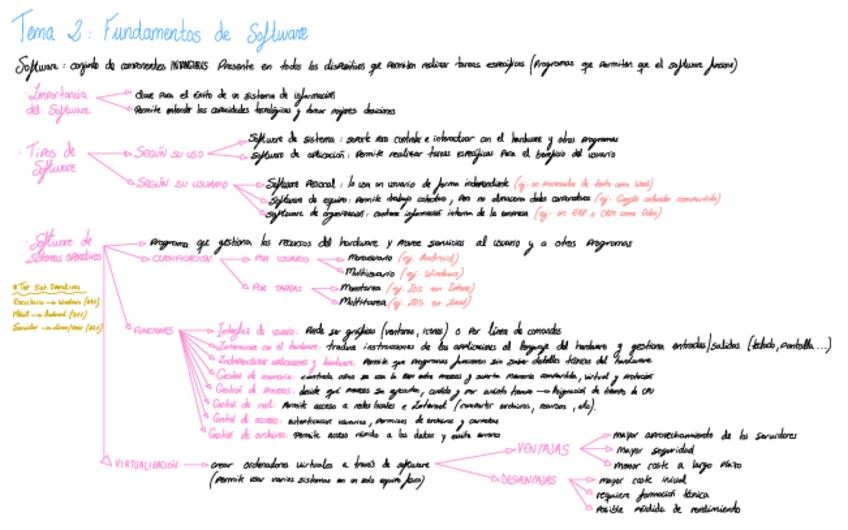 Tema 2: Fundamentos de Software
Software: conjunto de componentes INTANGIBLES presente en todos los dispositivos que permiten realizar tareas específicas (Programas que permiten que el software funcione)
· Importancia del Software
clave para el éxito de un sistema de información
Permite entender las capacidades tecnológicas y tomar mejores decisiones
· Tipos de Software
SEGÚN SU USO
Software de sistema: soporte para controlar e interactuar con el hardware y otros programas
software de aplicación: Permite realizar tareas específicas para el beneficio del usuario
SEGÚN SU USUARIO
Software Personal: lo usa un usuario de forma independiente
Software de equipo: Permite trabajo colectivo, pero no almacena datos corporativos (ej. Google calendar compartido)
software de organización: contiene información interna de la empresa (ej. un ERP o CRM como Odoo)
· Software de sistemas operativos
Programa que gestiona los recursos del hardware y provee servicios al usuario y a otros programas
CLASIFICACIÓN
POR USUARIO
Monousuario (ej. Android)
Multiusuario (ej. Windows)
POR TAREAS
Monotarea
Multitarea
Escritorio → Windows
Móvil → Android
Servidor →
FUNCIONES
Interfaz de usuario: Puede ser gráfica (ventanas, iconos) o por línea de comandos
Interacción con el hardware: traduce instrucciones de las aplicaciones al lenguaje del hardware y gestiona entradas/salidas (teclado, pantalla...)
Independizar aplicaciones y hardware: Permite que programas funcionen sin saber detalles técnicos del hardware
Gestión de memoria: controla cómo se usa la RAM entre procesos y
memoria compartida, virtual y
Gestión de procesos: decide qué procesos se ejecutan, cuándo y por cuánto tiempo → Asignación de tiempos de CPU
Gestión de red: Permite acceso a redes locales e Internet (compartir archivos, recursos, etc).
Control de acceso: autenticación usuarios, permisos de archivos y carpetas
Gestión de archivos: Permite acceso rápido a los datos y evita errores
VIRTUALIZACIÓN
crear ordenadores virtuales a través de software
(permite usar varios sistemas en un solo equipo físico)
VENTAJAS
mayor aprovechamiento de los servidores
mayor seguridad
menor coste a largo plazo
DESVENTAJAS
mayor coste inicial
requiere formación técnica
posible pérdida de rendimiento